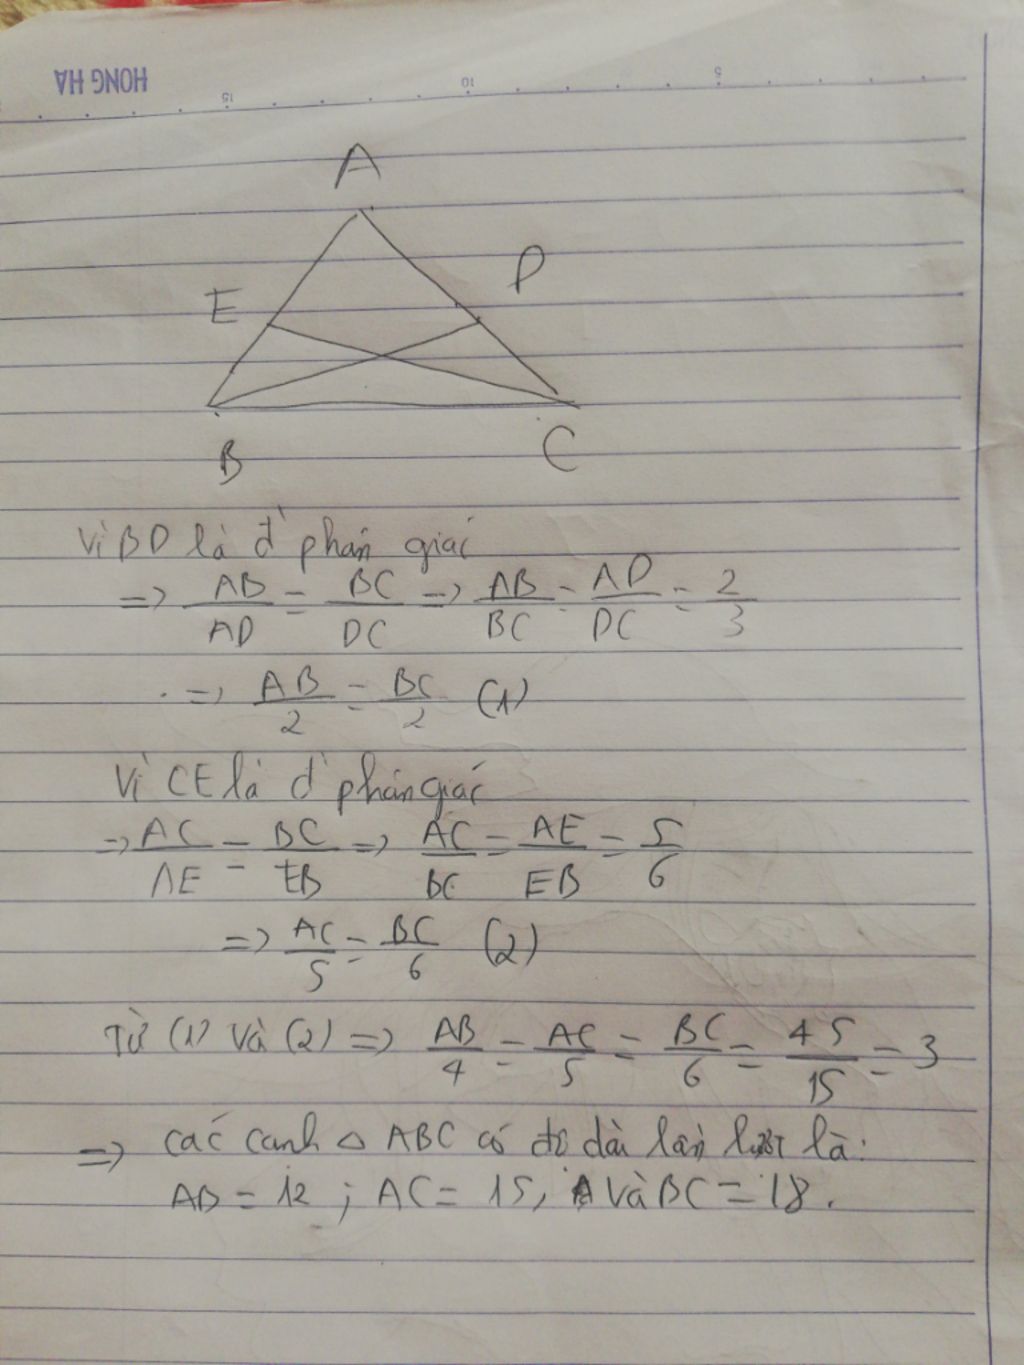 HONG HA
15 10 5
A
E D
B C
Vì BD là đ' phân giác
=> AB/AD = BC/DC => AB/BC = AD/DC = 2/3
=> AB/2 = BC/2 (1)
Vì CE là đ' phân giác
=> AC/AE = BC/EB => AC/BC = AE/EB = 5/6
=> AC/5 = BC/6 (2)
Từ (1) và (2) => AB/4 = AC/5 = BC/6 = 45/15 = 3
=> các cạnh △ ABC có độ dài lần lượt là:
AB = 12 ; AC = 15, và BC = 18.